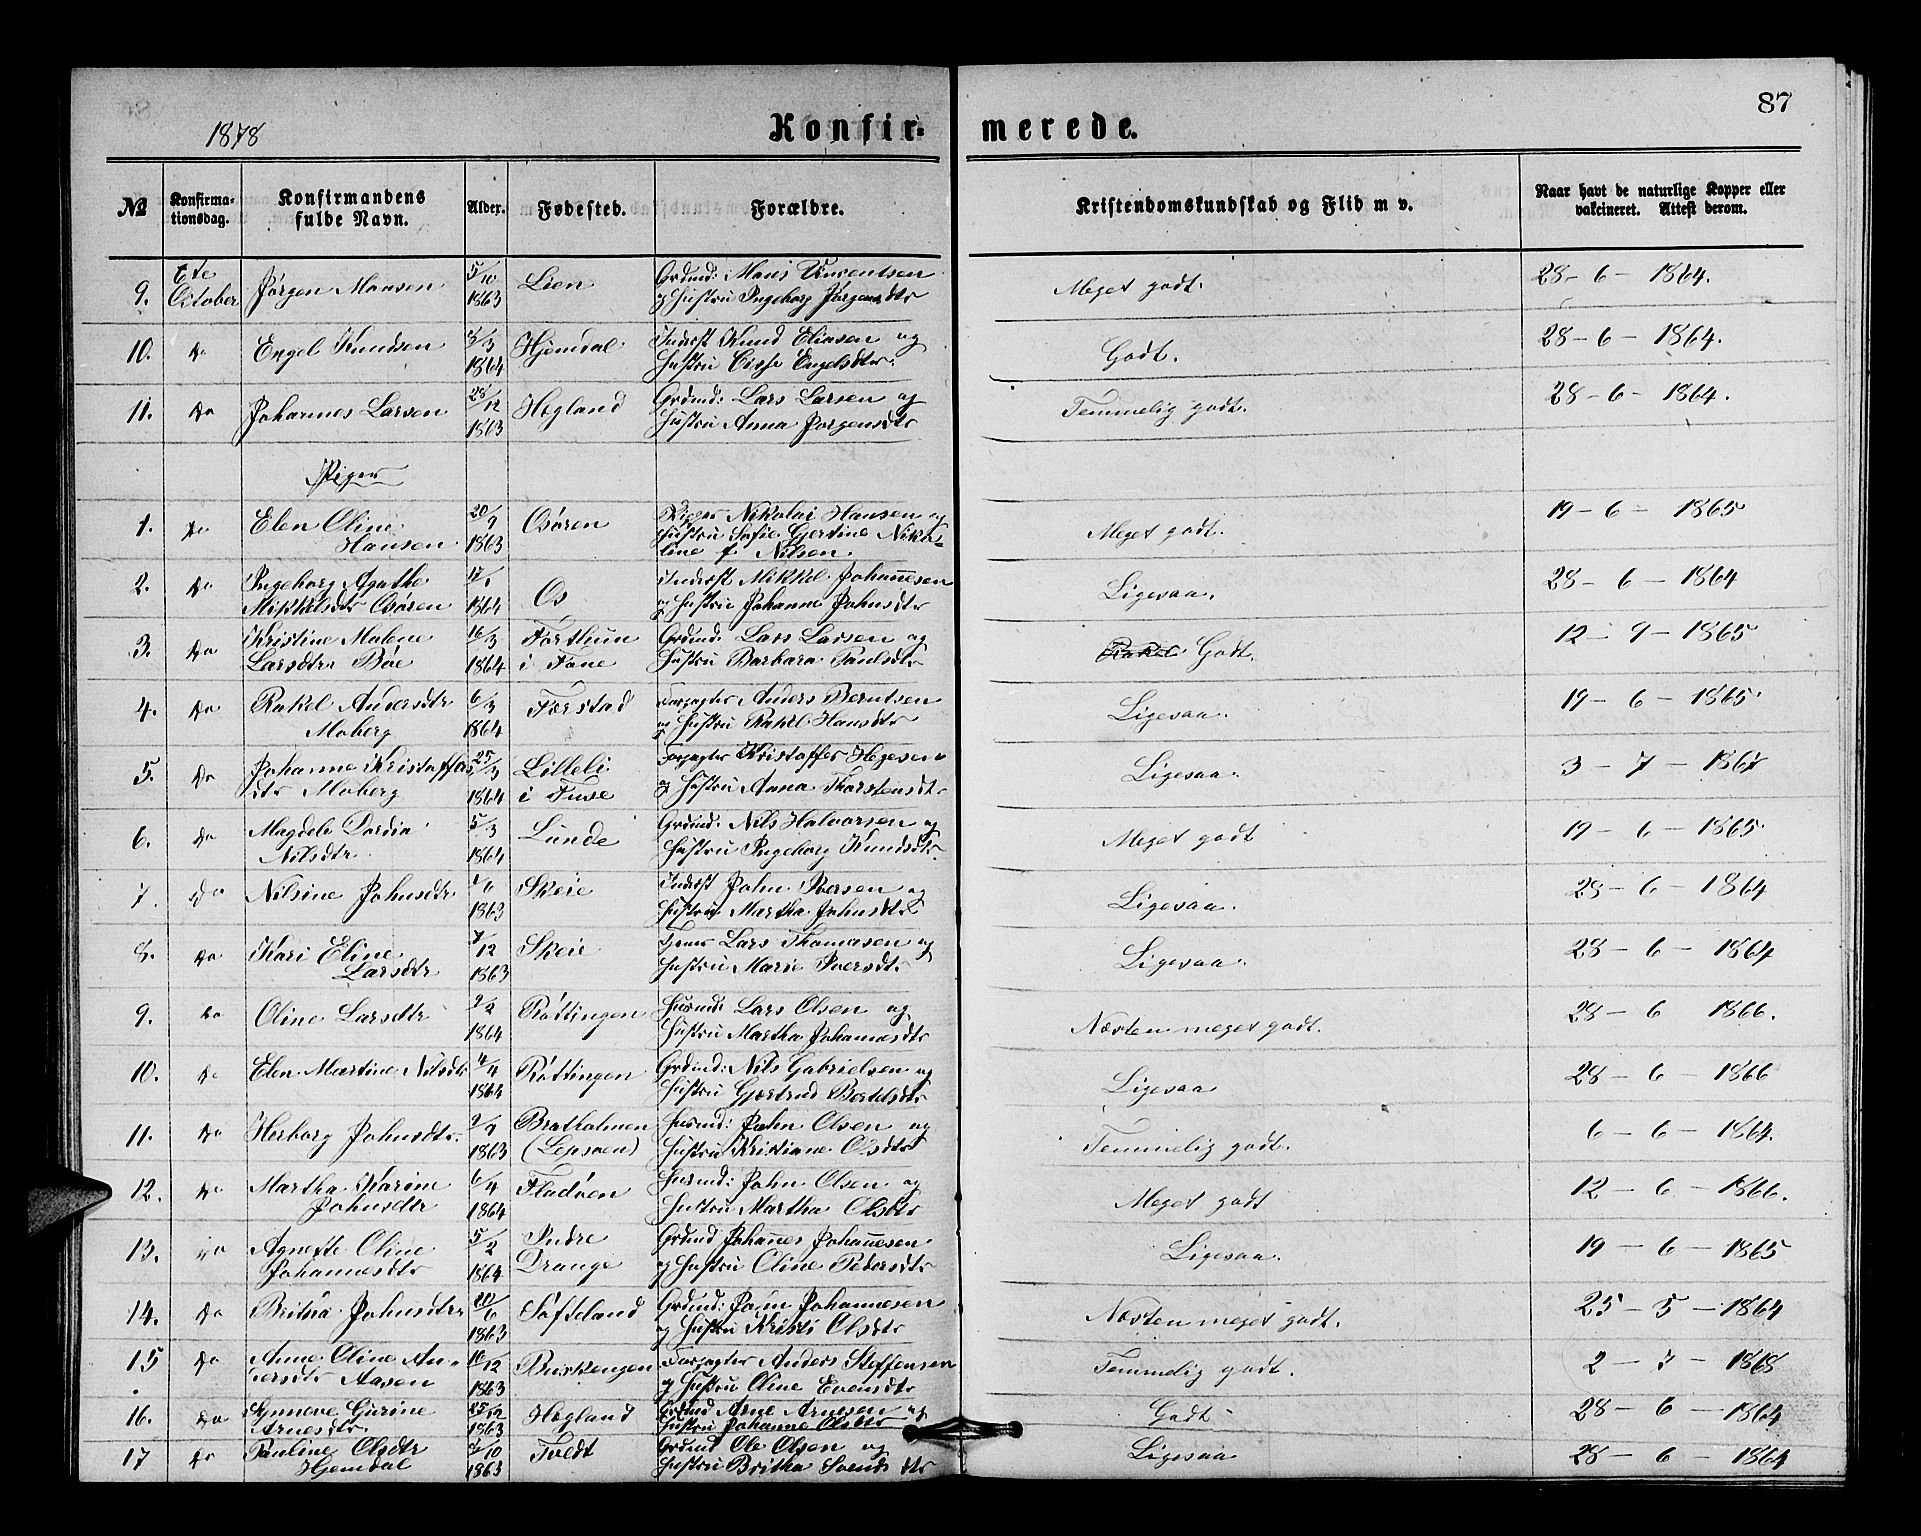 87
1878
Konfir=
merede.
№
Konfirma=
tionsdag.
Konfirmandens
fulde Navn.
Alder.
Fødested.
Forældre.
Kristendomskundskab og Flid m v.
Naar havt de naturlige Kopper eller
vakcineret. Attest derom.
9. 6te October Jørgen Monsen 5/10 1863 Lien Grdmd: Mons
og Hustru Ingeborg Jørgensdtr Meget godt. 28 - 6 - 1864.
10. Do Engel Knudsen 1864 Hjemdal. Inderst Knud Eliasen og
Hustru Engelsdtr. Godt. 28 - 6 - 1864.
11. Do Johannes Larsen 28/12 1863 Hegland Grdmd: Lars Larsen og
Hustru Anna Jørgensdtr Temmelig godt. 28 - 6 - 1864.
Piger
1. Do Elen Oline 20/9 1863 Osøren Nikolai Hansen og
Hansen Hustru Sofie Gjertine Niko=
line f. Nilsen. Meget godt. 19 - 6 - 1865
2. Do Ingeborg Agathe 1864 Os Inderst Mikkel Johannesen
Mikkelsdtr Osøren og Hustru Johanne Johnsdtr Ligesaa. 28 - 6 - 1864
3. Do Kristine Malene 16/3 1864 Førthun Grdmd: Lars Larsen og
Larsdtr Bøe i Fane Hustru Barbara Paulsdtr Godt. 12 - 9 - 1865
4. Do Rakel Andersdtr 6/3 1864 Førstad Forpagter Anders Berntsen
Moberg og Hustru Rakel Hansdtr Ligesaa. 19 - 6 - 1865
5. Do Johanne Kristoffers 25/3 1864 Lilleli Forpagter Kristoffer
dtr Moberg i Fuse og Hustru Anna Thorstensdtr Ligesaa. 3 - 7 - 1867
6. Do Magdele Dordia 5/3 1864 Lunde Grdmd: Nils Halvorsen og
Nilsdtr. Hustru Ingeborg Knudsdtr. Meget godt 19 - 6 - 1865
7. Do Nilsine Johnsdtr 1863 Skeie Inderst John Iversen og
Hustru Martha Johnsdtr Ligesaa. 28 - 6 - 1864
8. Do Kari Eline 7/12 1863 Skeie Lars Thomasen og
Larsdtr Hustru Mari Iversdtr Ligesaa. 28 - 6 - 1864
9. Do Oline Larsdtr 9/2 1864 Røttingen Husmd: Lars Olsen og
Hustru Martha Johannesdtr Næsten meget godt. 28 - 6 1866.
10. Do Elen Martine Nilsdtr 4/4 1864 Røttingen Grdmd: Nils Gabrielsen og
Hustru Gjertrud Bertelsdtr Ligesaa 28 - 6 - 1866
11. Do Herborg Johnsdtr. 1863 Bratholmen Husmd: John Olsen og
(Lepsøen) Hustru Kristiane Olsdtr Temmelig godt. 6 - 6 - 1864.
12. Do Martha Karine 6/4 1864 Fladøen Husmd: John Olsen og
Johnsdtr Hustru Martha Olsdtr Meget godt 12 - 6 - 1866.
13. Do Agnethe Oline 5/2 1864 Indre Grdmd Johannes Johannesen
Johannesdtr Drange og Hustru Oline Pedersdtr Ligesaa. 19 - 6 - 1865
14. Do Britha Johnsdtr 20/6 1863 Søfteland Grdmd: John Johannesen
og Hustru Kristi Olsdtr Næsten meget godt. 25 - 5 - 1864
15 Do Anne Oline An= 10/12 1863 Buskengen Forpagter Anders Steffensen
dersdtr Aasen og Hustru Oline Evensdtr Temmelig godt. 2 - 7 - 1868
16. Do Synneve Gurine 25/12 1863 Hegland Grdmd Arne Arnesen og
Arnesdtr. Hustru Johanne Olsdtr Godt 28 - 6 - 1864
17 Do Pauline Olsdtr 1863 Tvedt Grdmd Ole Olsen og
Hjemdal Hustru Britha Svendsdtr Ligesaa 28 - 6 - 1864